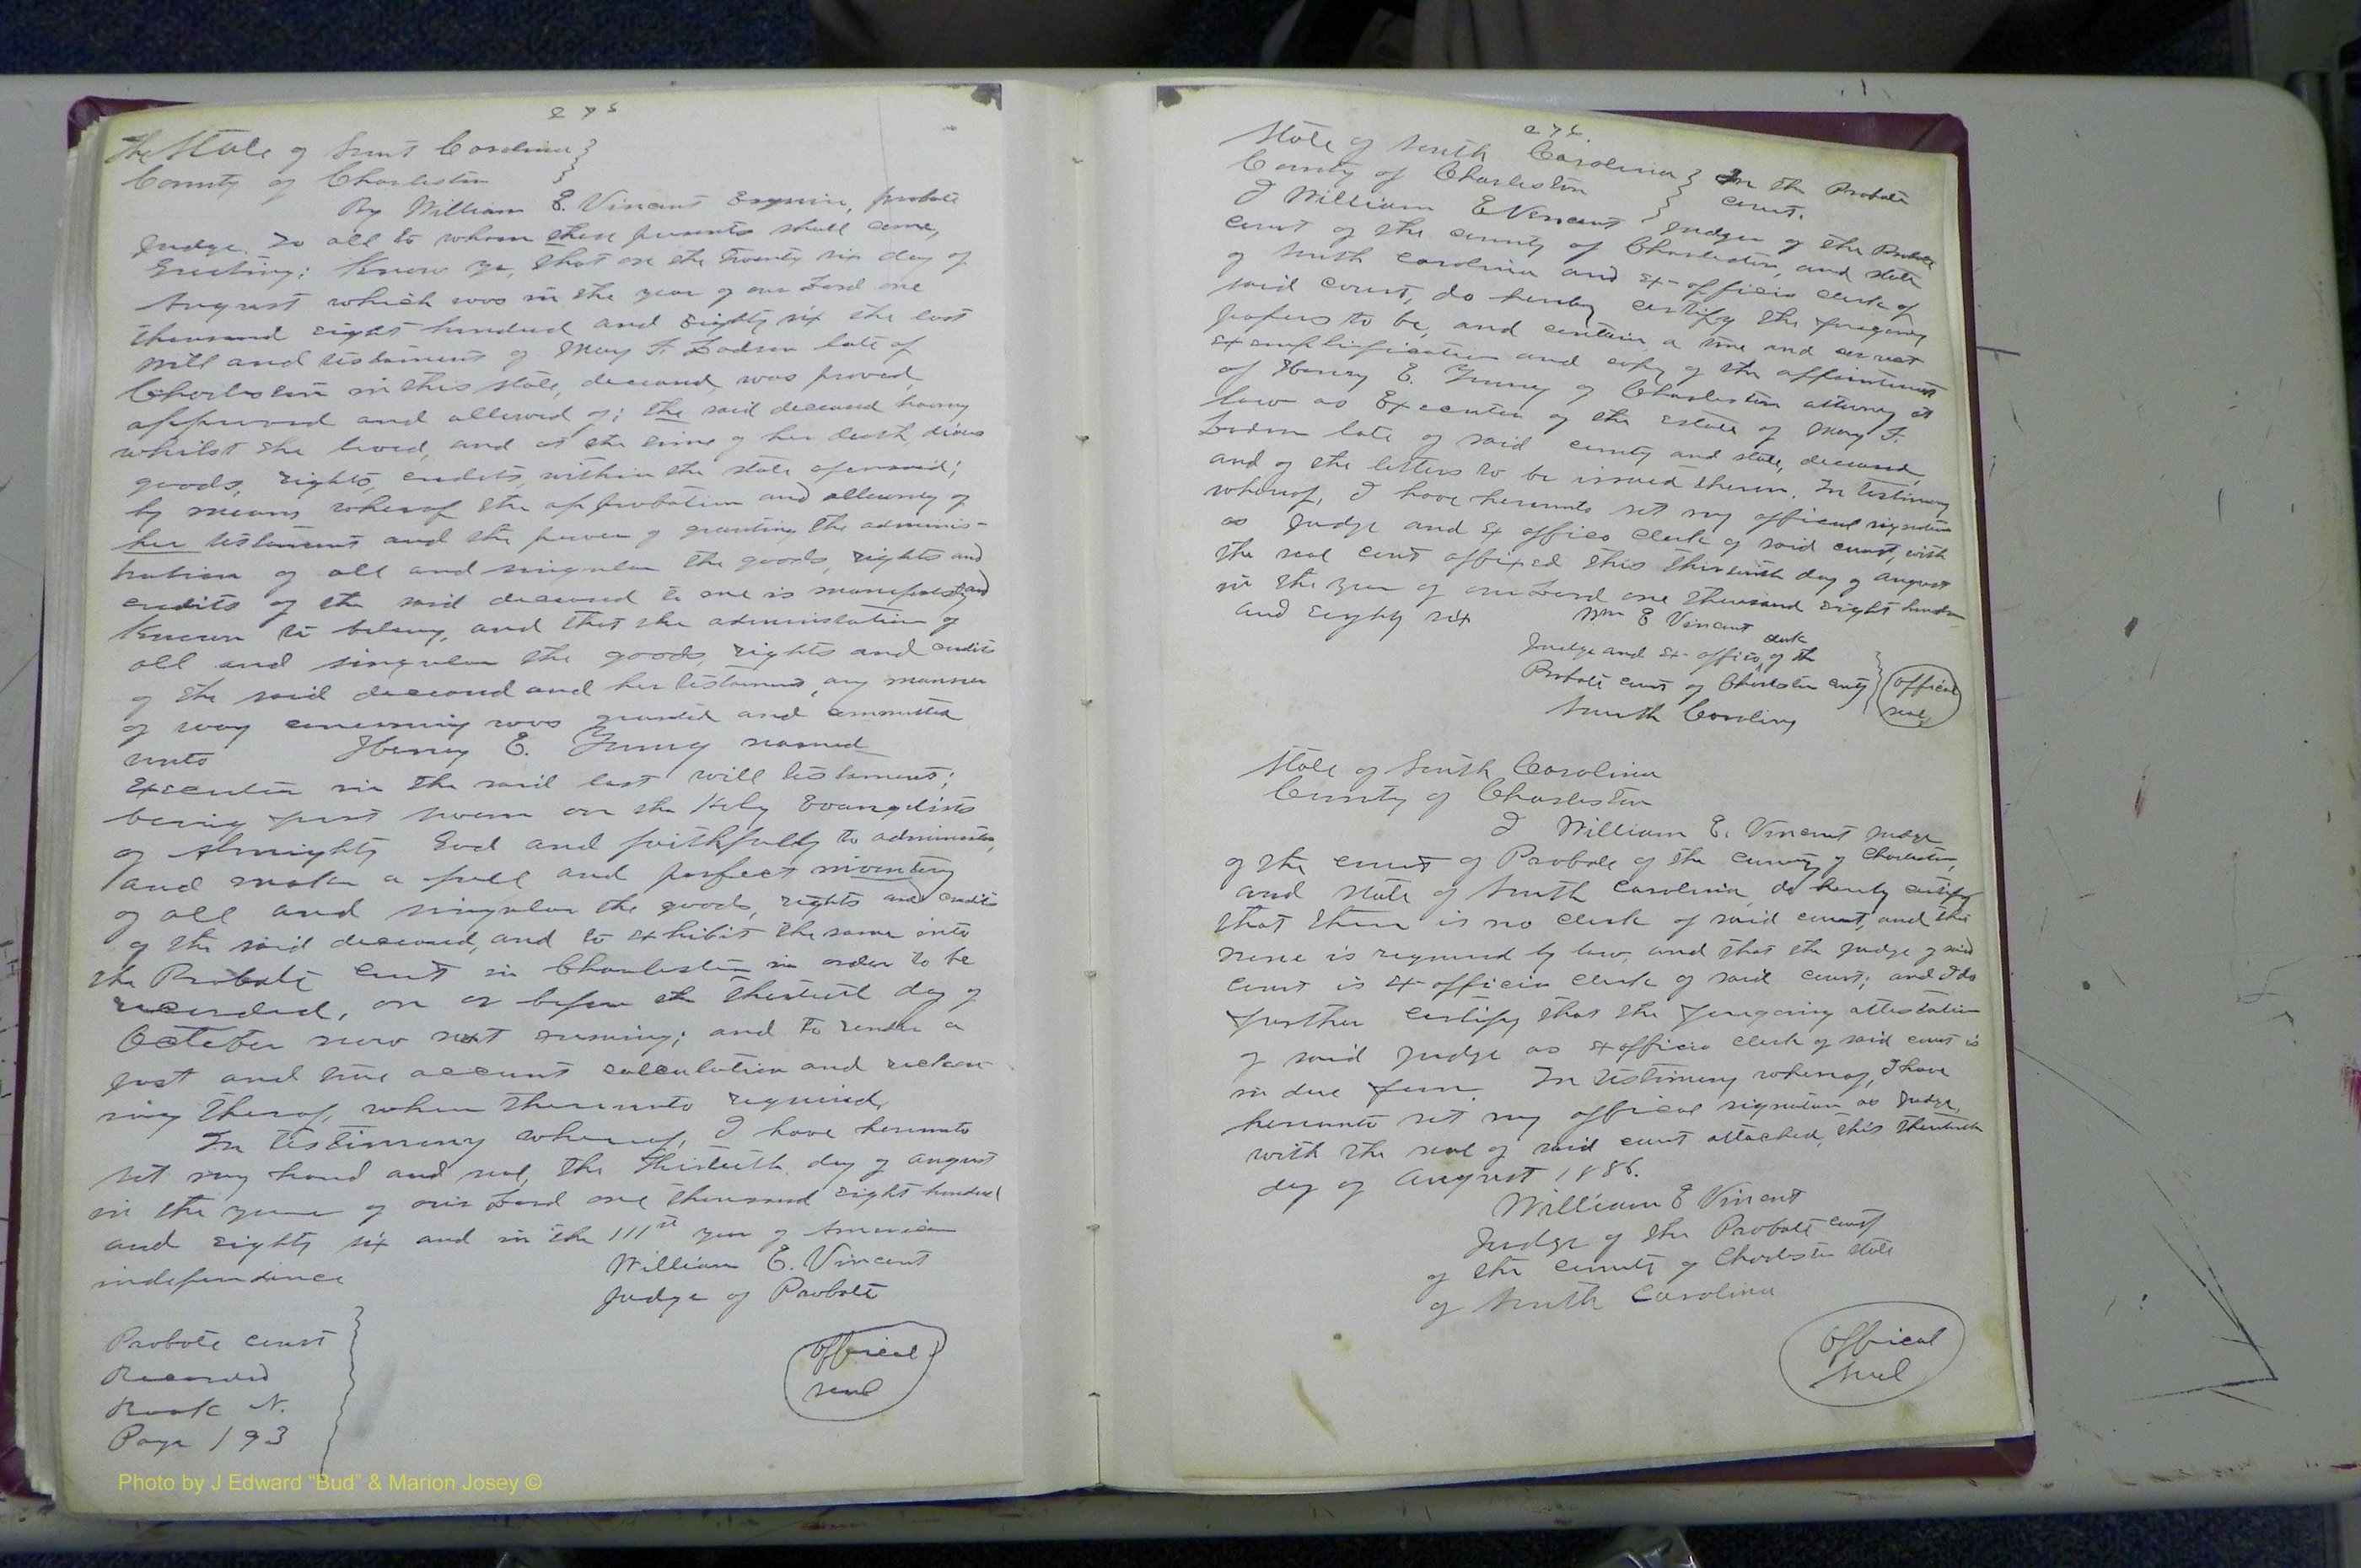 275
The State of South Carolina
County of Charleston
By William E. Vincent Esquire, probate
Judge. To all to whom these presents shall come,
Greeting: Know ye, that on the twenty six day of
August which was in the year of our Lord one
thousand eight hundred and Eighty six the last
will and testament of Mary F. Lodson late of
Charleston in this state, deceased, was proved,
approved and allowed of; the said deceased having
whilst she lived, and at the time of her death, divers
goods, rights, credits, within the state aforesaid;
by means whereof the approbation and allowing of
her testament and the power of granting the adminis-
tration of all and singular the goods, rights and
credits of the said deceased to me is manifestly and
Known to belong, and that the administration of
all and singular the goods, rights and credits
of the said deceased and her testament, any manner
of way concerning was granted and committed
unto Henry E. Young named
Executor in the said last will testament;
being first sworn on the Holy Evangelists
of Almighty God and faithfully to administer,
and make a full and perfect inventory
of all and singular the goods, rights and credits
of the said deceased, and to exhibit the same into
the Probate Court in Charleston in order to be
recorded, on or before the thirtieth day of
October now next ensuing; and to render a
just and true account calculation and reckon-
ing thereof, when thereunto required.
In testimony whereof, I have hereunto
set my hand and seal, the thirtieth day of August
in the year of our Lord one thousand eight hundred
and eighty six and in the 111st year of American
independence
William E. Vincent
Judge of Probate
Probate court
Recorded
Book N.
Page 193
Offical
seal
Photo by J Edward “Bud” & Marion Josey ©
276
State of South Carolina
County of Charleston
In the Probate
court.
I William E Vincent Judge of the Probate
court of the county of Charleston, and state
of South Carolina and ex-officio clerk of
said court, do hereby certify the foregoing
papers to be, and contain a true and correct
exemplification and copy of the appointment
of Henry E. Young of Charleston attorney at
law as Executor of the Estate of Mary F.
Lodson late of said county and state, deceased,
and of the letters to be issued therein. In testimony
whereof, I have hereunto set my offical signature
as Judge and Ex offico Clerk of said court, with
the seal court affixed this thirtieth day of August
in the year of our Lord one thousand eight hundred
and eighty six
Wm E Vincent
clerk
Judge and Ex-offico of the
Probate court of Charleston County
South Carolina
Offical
seal
State of South Carolina
County of Charleston
I William E. Vincent Judge
of the court of Probate of the County of Charleston,
and State of South Carolina, do hereby certify
that there is no clerk of said court, and that
none is required by law, and that the Judge of said
court is ex officio clerk of said court; and I do
further certify that the foregoing attestation
of said Judge as Ex officio clerk of said court is
in due form. In testimony whereof, I have
hereunto set my offical signature as Judge,
with the seal of said court attached, this thirtieth
day of August 1886.
William E Vincent
Judge of the Probate court
of the County of Charleston state
of South Carolina
Offical
Seal